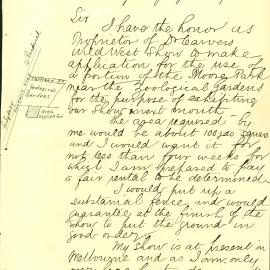 Sir
I have the honor as
Proprietor of Dr Carvers
Wild West Show to make
application for the use of
a portion of the Moore Park
near the Zoological Gardens
for the purpose of exhibiting
our Show next month
The area required by
me would be about 100 yds square
and I would want it for
not less than four weeks for
which I am prepared to pay
a fair rental to be determined
I would put up a
substantial fence and would
guarantee at the finish of the
show to put the ground in
good order
My show is at present in
Melbourne and as I am only